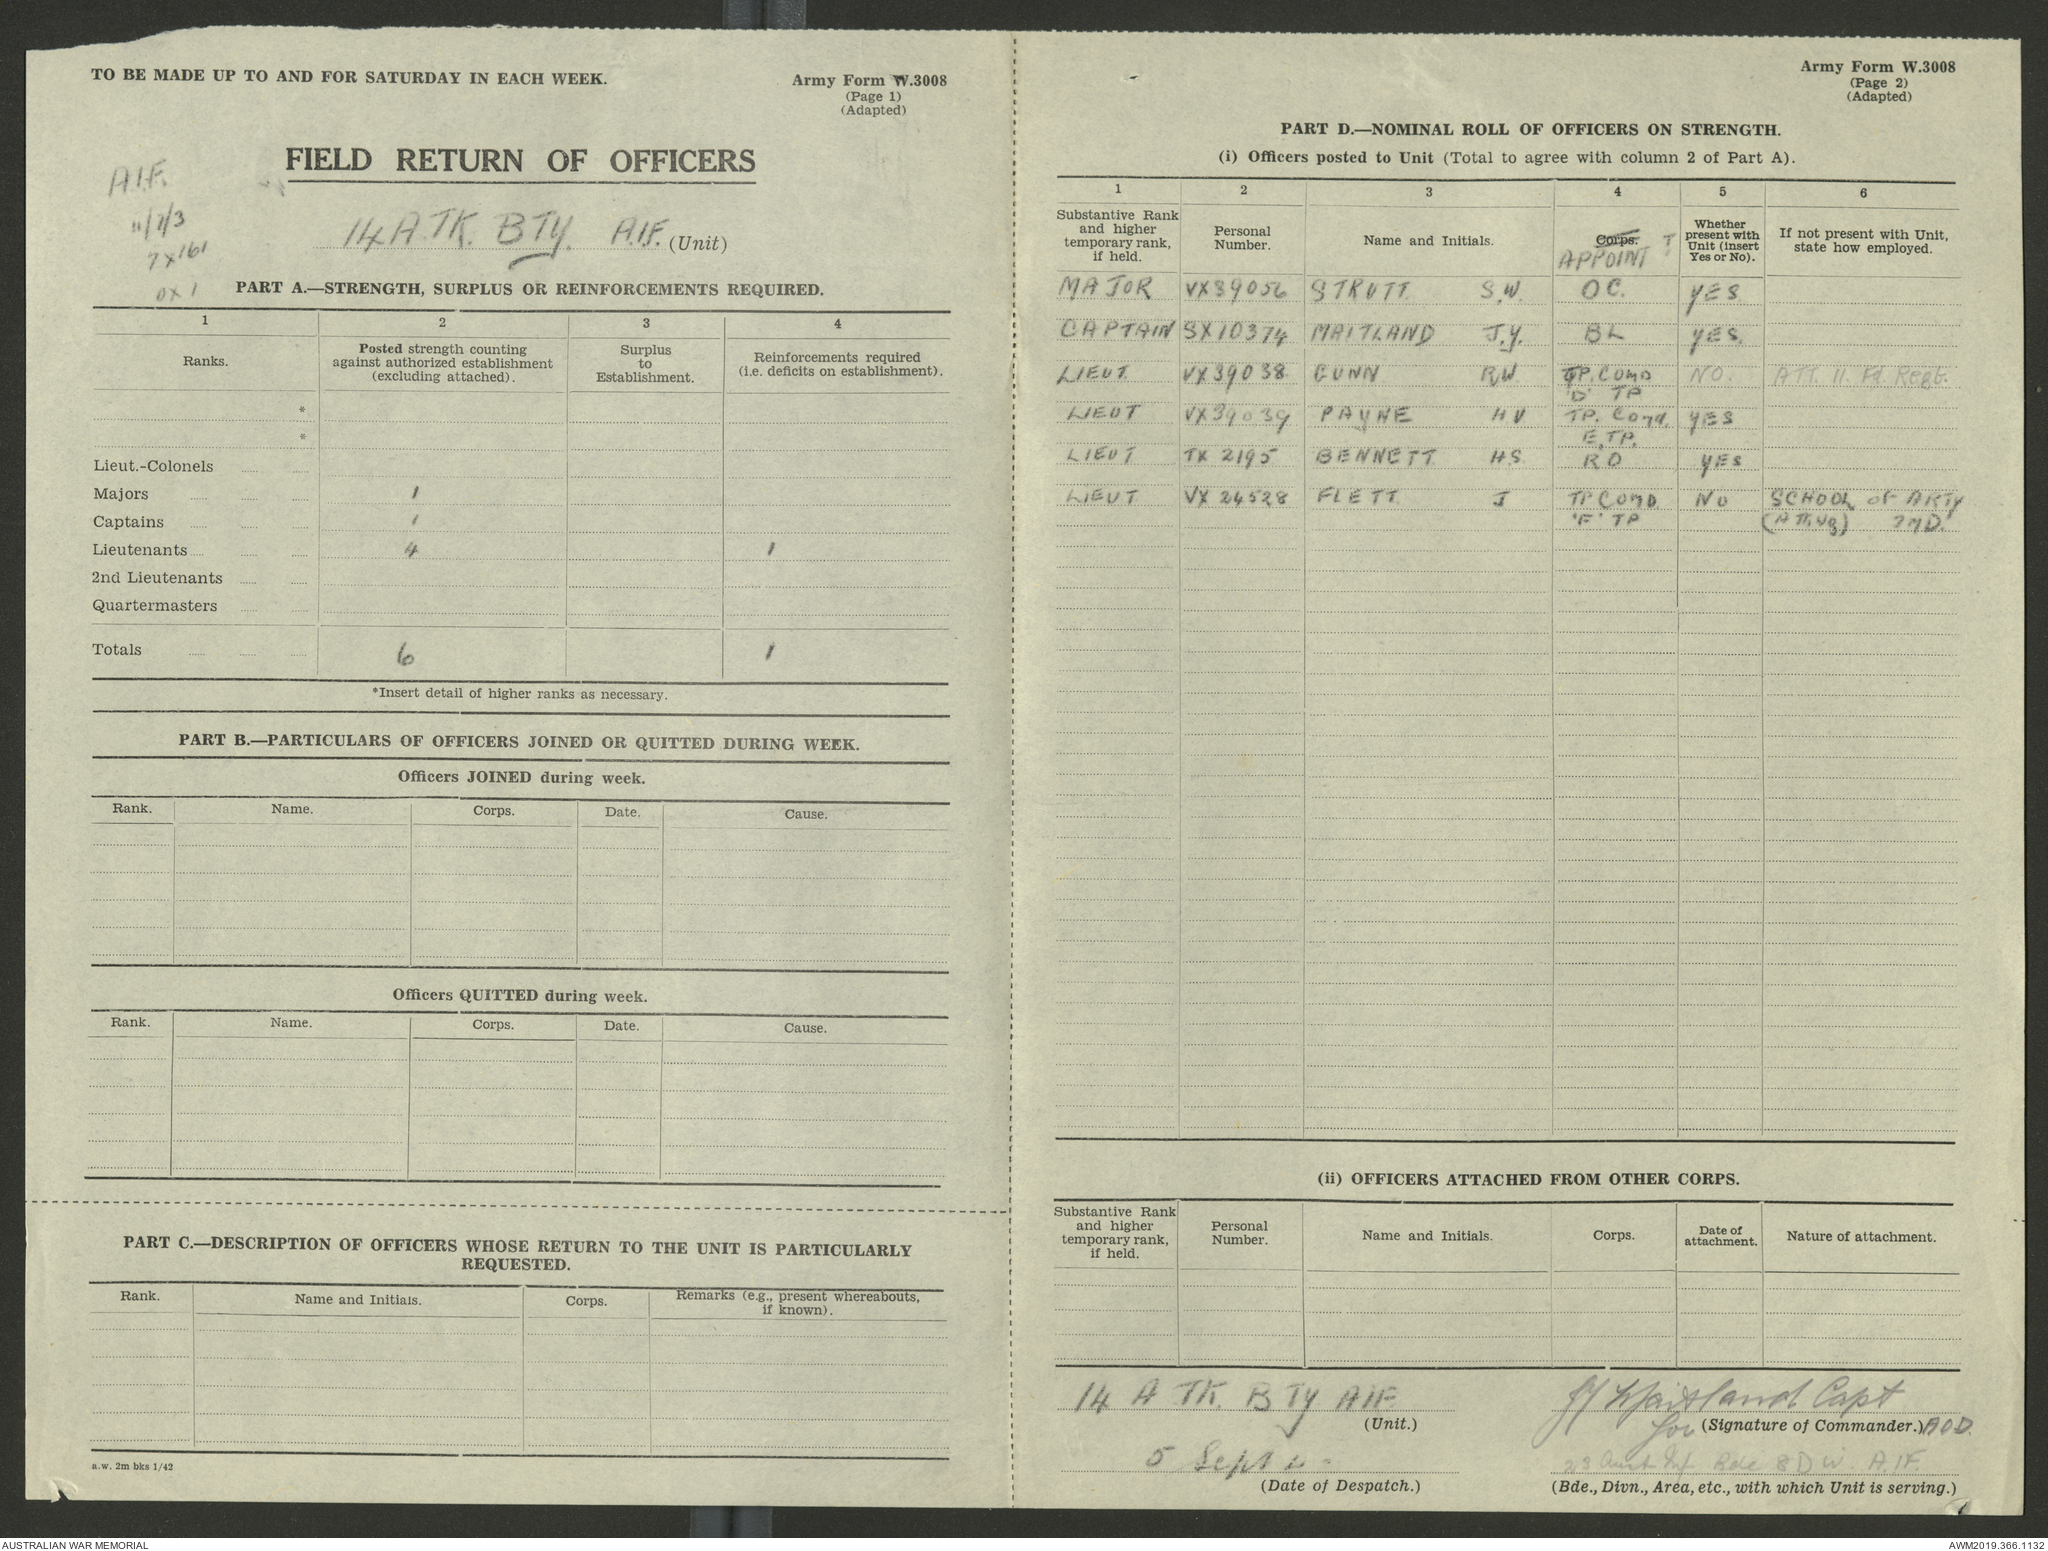 TO BE MADE UP TO AND FOR SATURDAY IN EACH WEEK.
Army Form W.3008
(Page 1)
(Adapted)
FIELD RETURN OF OFFICERS
A.I.F.
11/7/3
7 x 161
0 x 1
14 A.TK. BTY. A.I.F. (Unit)
PART A.—STRENGTH, SURPLUS OR REINFORCEMENTS REQUIRED.
1 2 3 4
Ranks. Posted strength counting against authorized establishment (excluding attached). Surplus to Establishment. Reinforcements required (i.e. deficits on establishment).
*
*
Lieut.-Colonels
Majors 1
Captains 1
Lieutenants 4 1
2nd Lieutenants
Quartermasters
Totals 6 1
*Insert detail of higher ranks as necessary.
PART B.—PARTICULARS OF OFFICERS JOINED OR QUITTED DURING WEEK.
Officers JOINED during week.
Rank. Name. Corps. Date. Cause.
Officers QUITTED during week.
Rank. Name. Corps. Date. Cause.
PART C.—DESCRIPTION OF OFFICERS WHOSE RETURN TO THE UNIT IS PARTICULARLY
REQUESTED.
Rank. Name and Initials. Corps. Remarks (e.g., present whereabouts, if known).
a.w. 2m bks 1/42
Army Form W.3008
(Page 2)
(Adapted)
PART D.—NOMINAL ROLL OF OFFICERS ON STRENGTH.
(i) Officers posted to Unit (Total to agree with column 2 of Part A).
1 2 3 4 5 6
Substantive Rank and higher temporary rank, if held. Personal Number. Name and Initials. Corps. APPOINT T Whether present with Unit (insert Yes or No). If not present with Unit, state how employed.
MAJOR VX39056 STRUTT S.W. OC. YES
CAPTAIN SX10374 MAITLAND J.Y. BL YES.
LIEUT VX39038 GUNN R.W TP. COMD NO. ATT. 11. Fd. Regt.
'D' TP
LIEUT VX39039 PAYNE H V TP. Comd. YES
E. TP.
LIEUT TX 2195 BENNETT H.S R O YES
LIEUT VX 24528 FLETT J TP COMD NO SCHOOL of ARTY
'F' TP 7MD.
(ii) OFFICERS ATTACHED FROM OTHER CORPS.
Substantive Rank and higher temporary rank, if held. Personal Number. Name and Initials. Corps. Date of attachment. Nature of attachment.
14 A TK. BTY AIF JY Maitland Capt
(Unit.) for (Signature of Commander.)
5 Sept 23 Aust Inf Bde 8 Div. A.I.F.
(Date of Despatch.) (Bde., Divn., Area, etc., with which Unit is serving.)
AUSTRALIAN WAR MEMORIAL
AWM2019.366.1132